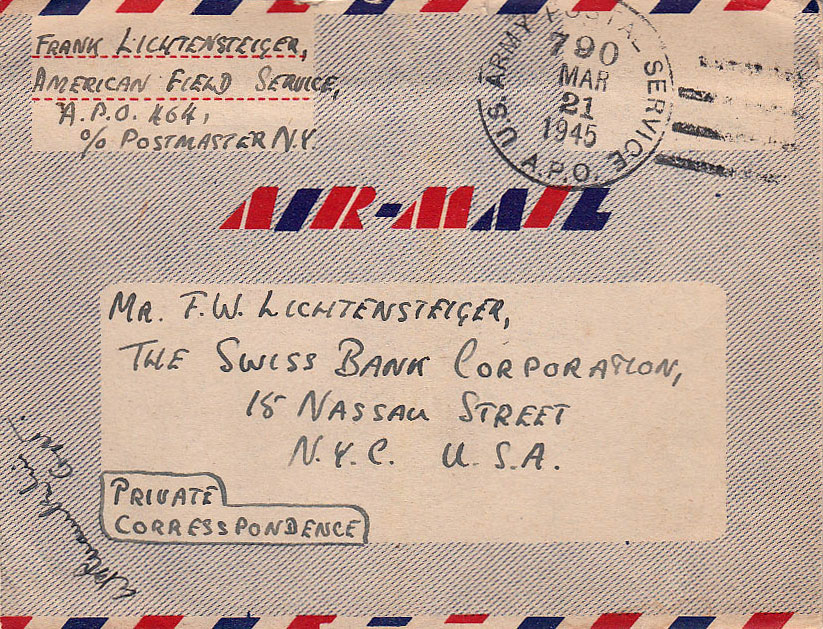 FRANK LICHTENSTEIGER,
AMERICAN FIELD SERVICE,
A.P.O. 464,
c/o POSTMASTER N.Y.
U.S. ARMY POSTAL SERVICE
790
MAR
21
1945
A.P.O.
AIR-MAIL
MR. F.W. LICHTENSTEIGER,
THE SWISS BANK CORPORATION,
15 NASSAU STREET
N.Y.C. U.S.A.
PRIVATE
CORRESSPONDENCE